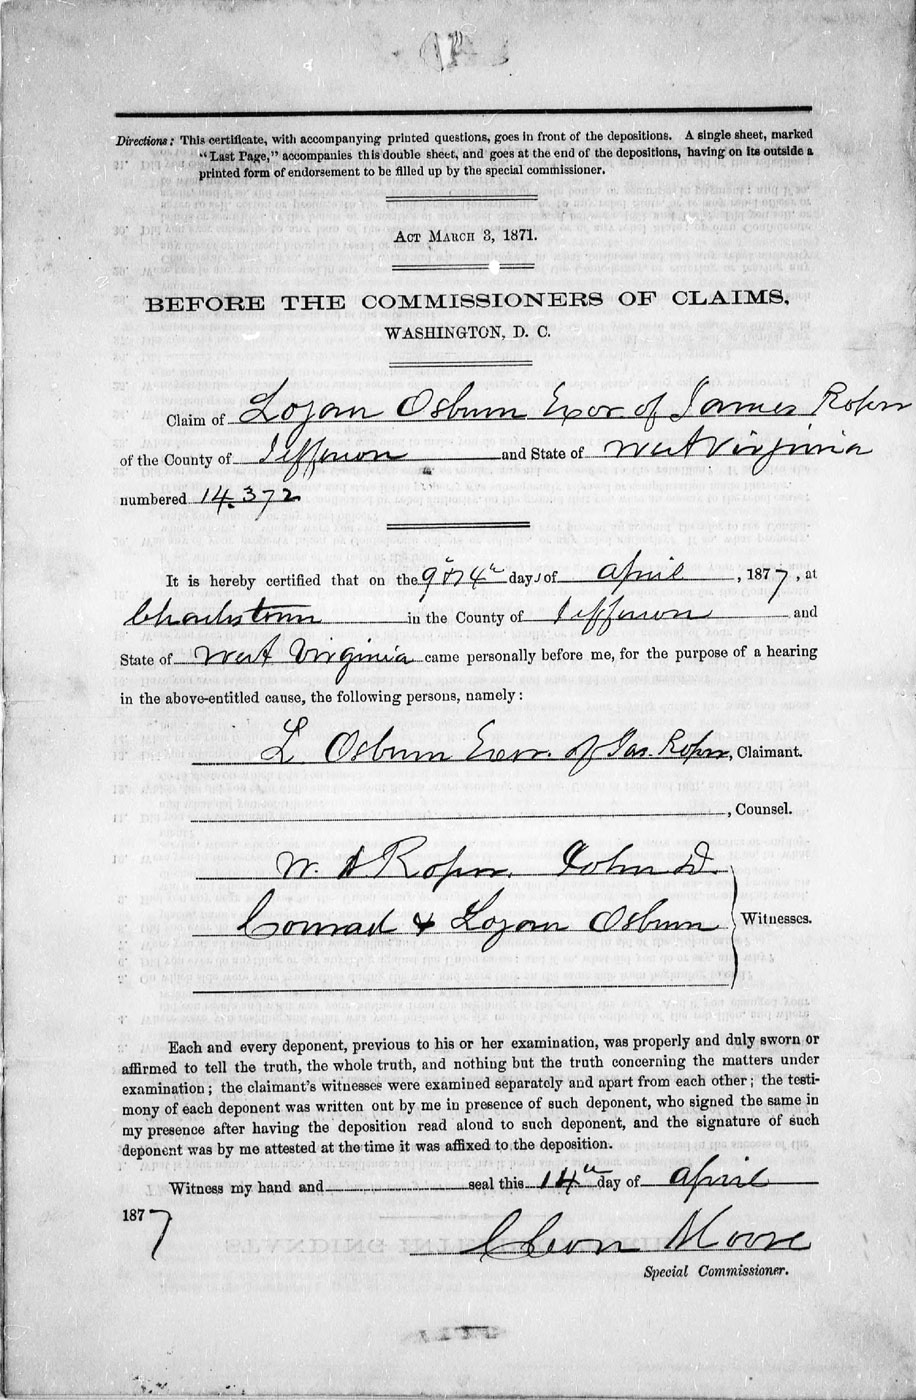 Directions: This certificate, with accompanying printed questions, goes in front of the depositions. A single sheet, marked
"Last Page," accompanies this double sheet, and goes at the end of the depositions, having on its outside a
printed form of endorsement to be filled up by the special commissioner.
ACT MARCH 3, 1871.
BEFORE THE COMMISSIONERS OF CLAIMS,
WASHINGTON, D. C.
Claim of Logan Osburn Exor of James Roper
of the County of Jefferson and State of West Virginia
numbered 14.372
It is hereby certified that on the days of April, 1877, at
Charlestown in the County of Jefferson and
State of West Virginia came personally before me, for the purpose of a hearing
in the above-entitled cause, the following persons, namely:
L Osburn Exor. of Jas. Roper, Claimant.
, Counsel.
W. A Roper. John D.
Conrad & Logan Osburn Witnesses.
Each and every deponent, previous to his or her examination, was properly and duly sworn or
affirmed to tell the truth, the whole truth, and nothing but the truth concerning the matters under
examination; the claimant's witnesses were examined separately and apart from each other; the testi-
mony of each deponent was written out by me in presence of such deponent, who signed the same in
my presence after having the deposition read aloud to such deponent, and the signature of such
deponent was by me attested at the time it was affixed to the deposition.
Witness my hand and seal this 14th day of April
1877
Cleon Moore
Special Commissioner.